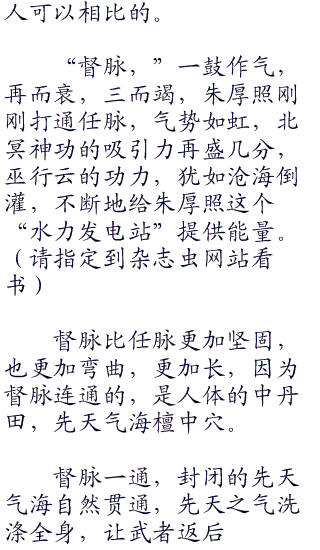 人可以相比的。
“督脉，”一鼓作气，
再而衰，三而竭，朱厚照刚
刚打通任脉，气势如虹，北
冥神功的吸引力再盛几分，
巫行云的功力，犹如沧海倒
灌，不断地给朱厚照这个
“水力发电站”提供能量。
（请指定到杂志虫网站看
书）
督脉比任脉更加坚固，
也更加弯曲，更加长，因为
督脉连通的，是人体的中丹
田，先天气海檀中穴。
督脉一通，封闭的先天
气海自然贯通，先天之气洗
涤全身，让武者返后